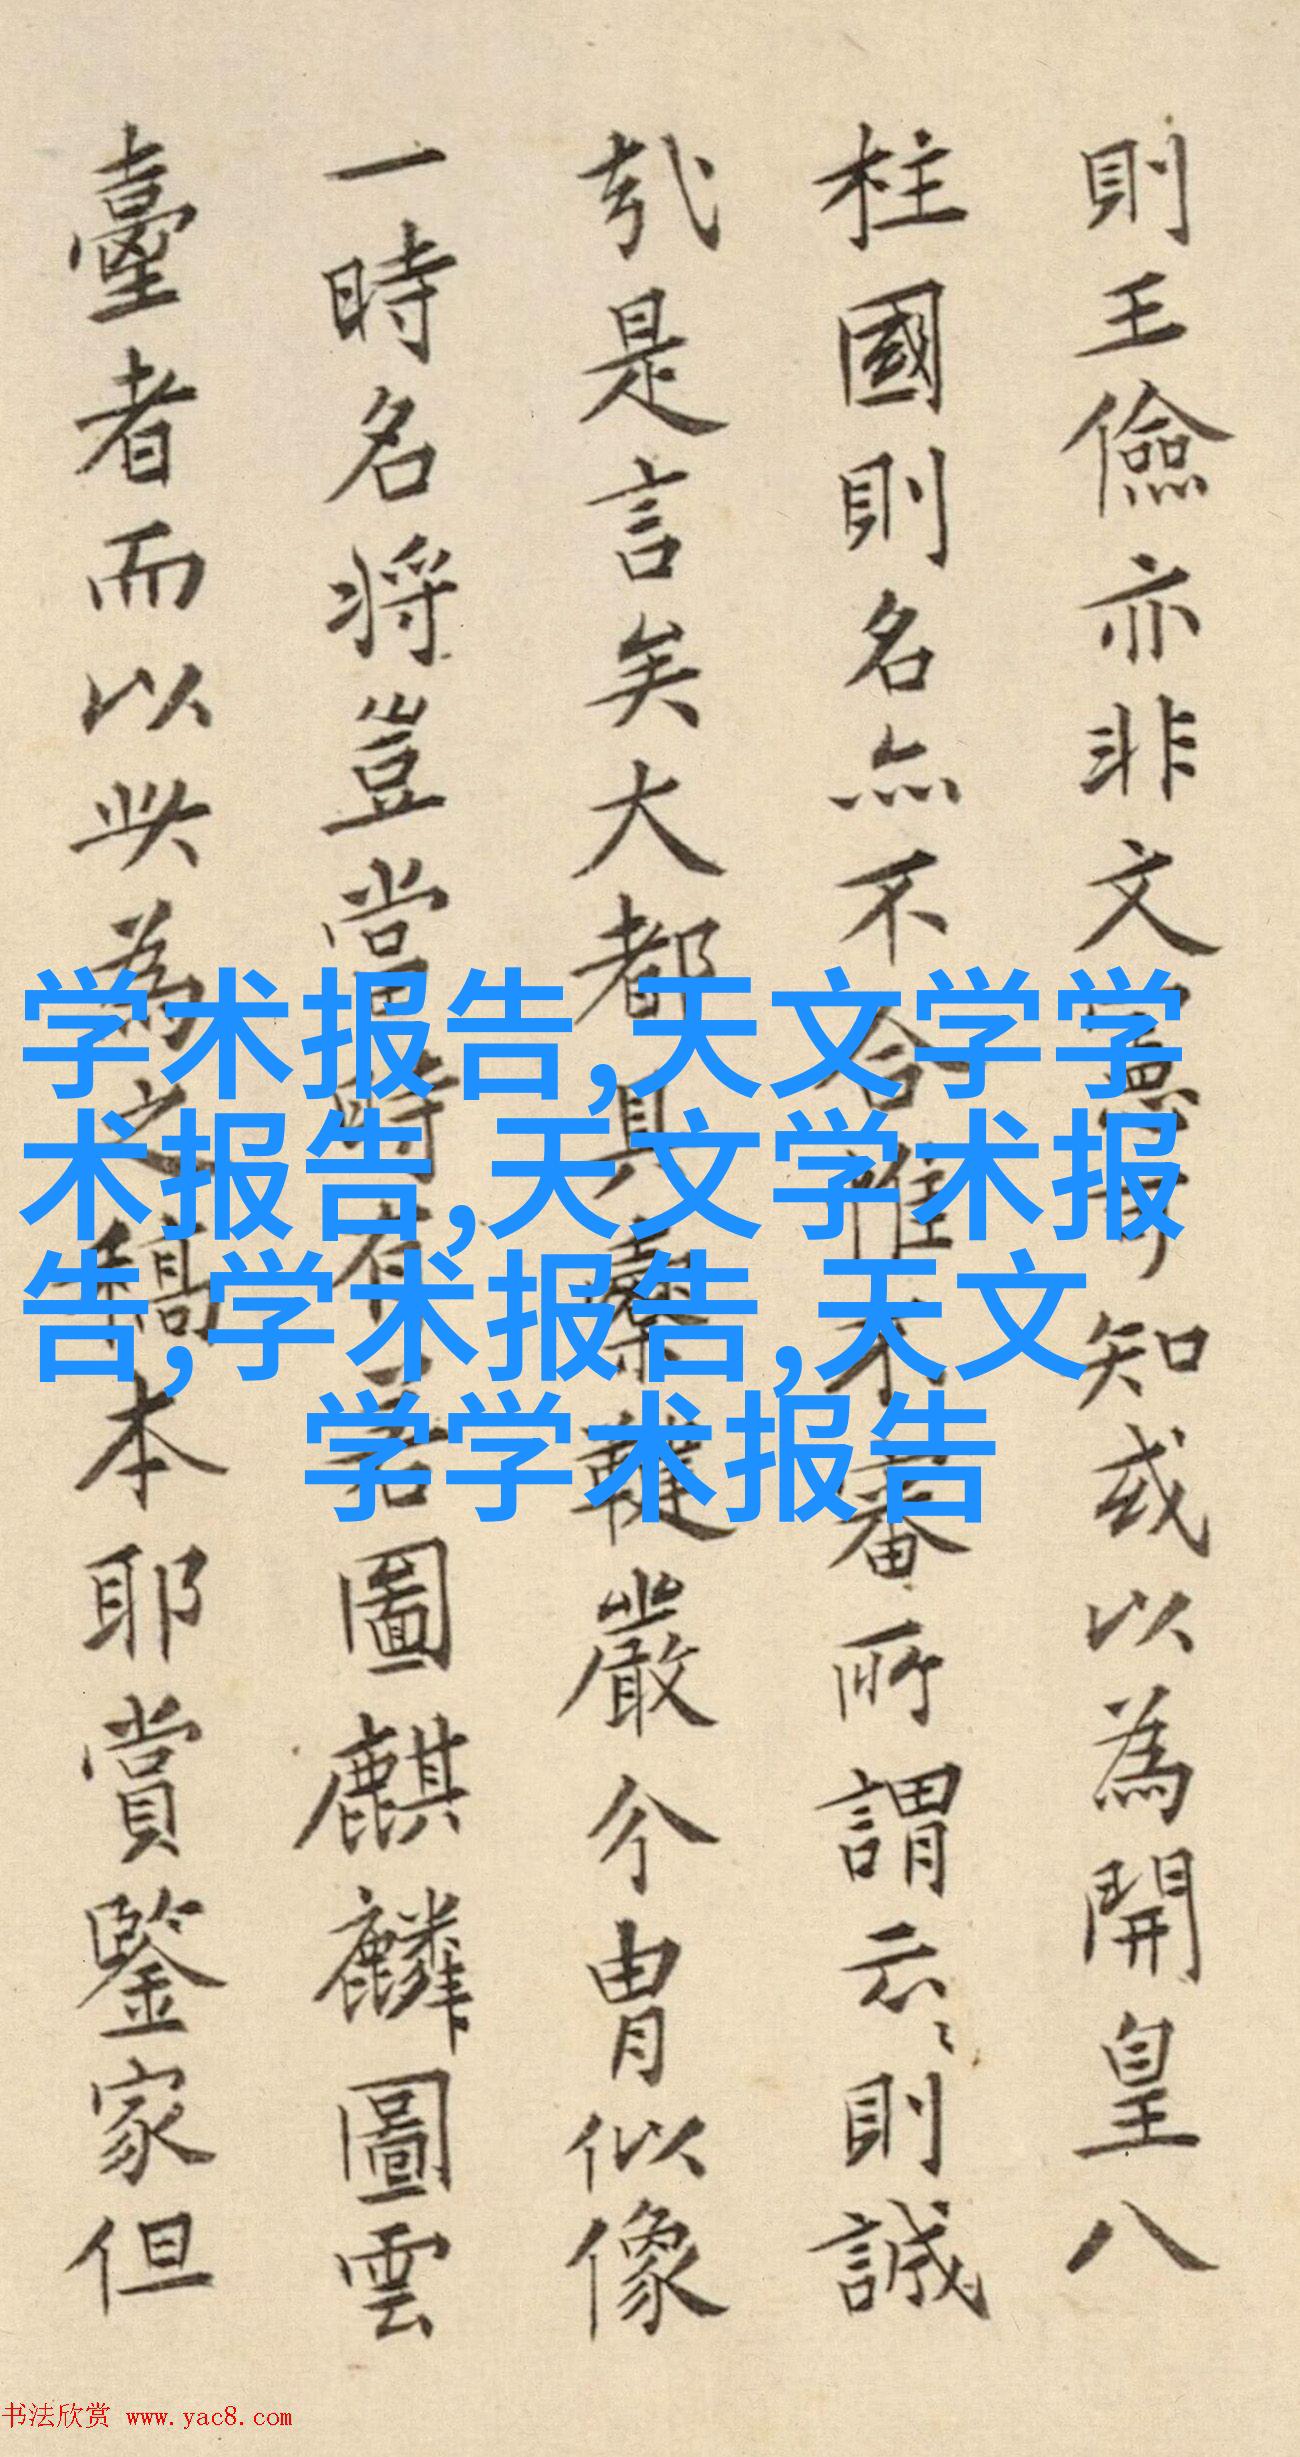 則王儉亦非文憲可知或以為開皇八
柱國則名無不合惟不審所謂云〻則誠
哉是言矣大都具橐鞬嚴介胄似像
一時名将豈當時有若圖麒麟圖雲
臺者而以此為之稿本耶賞鑒家但
学术报告,天文学学
术报告,天文学术报
告,学术报告,天文
学学术报告
书法欣赏 www.yac8.com